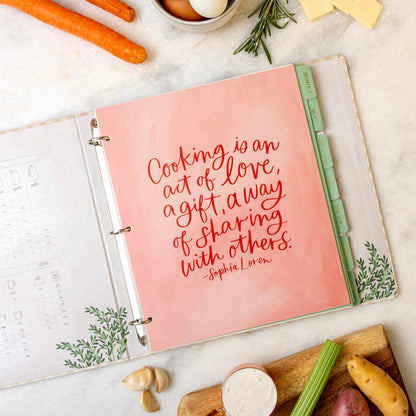 Cooking is an
act of love,
a gift, a way
of sharing
with others.
-Sophia Loren